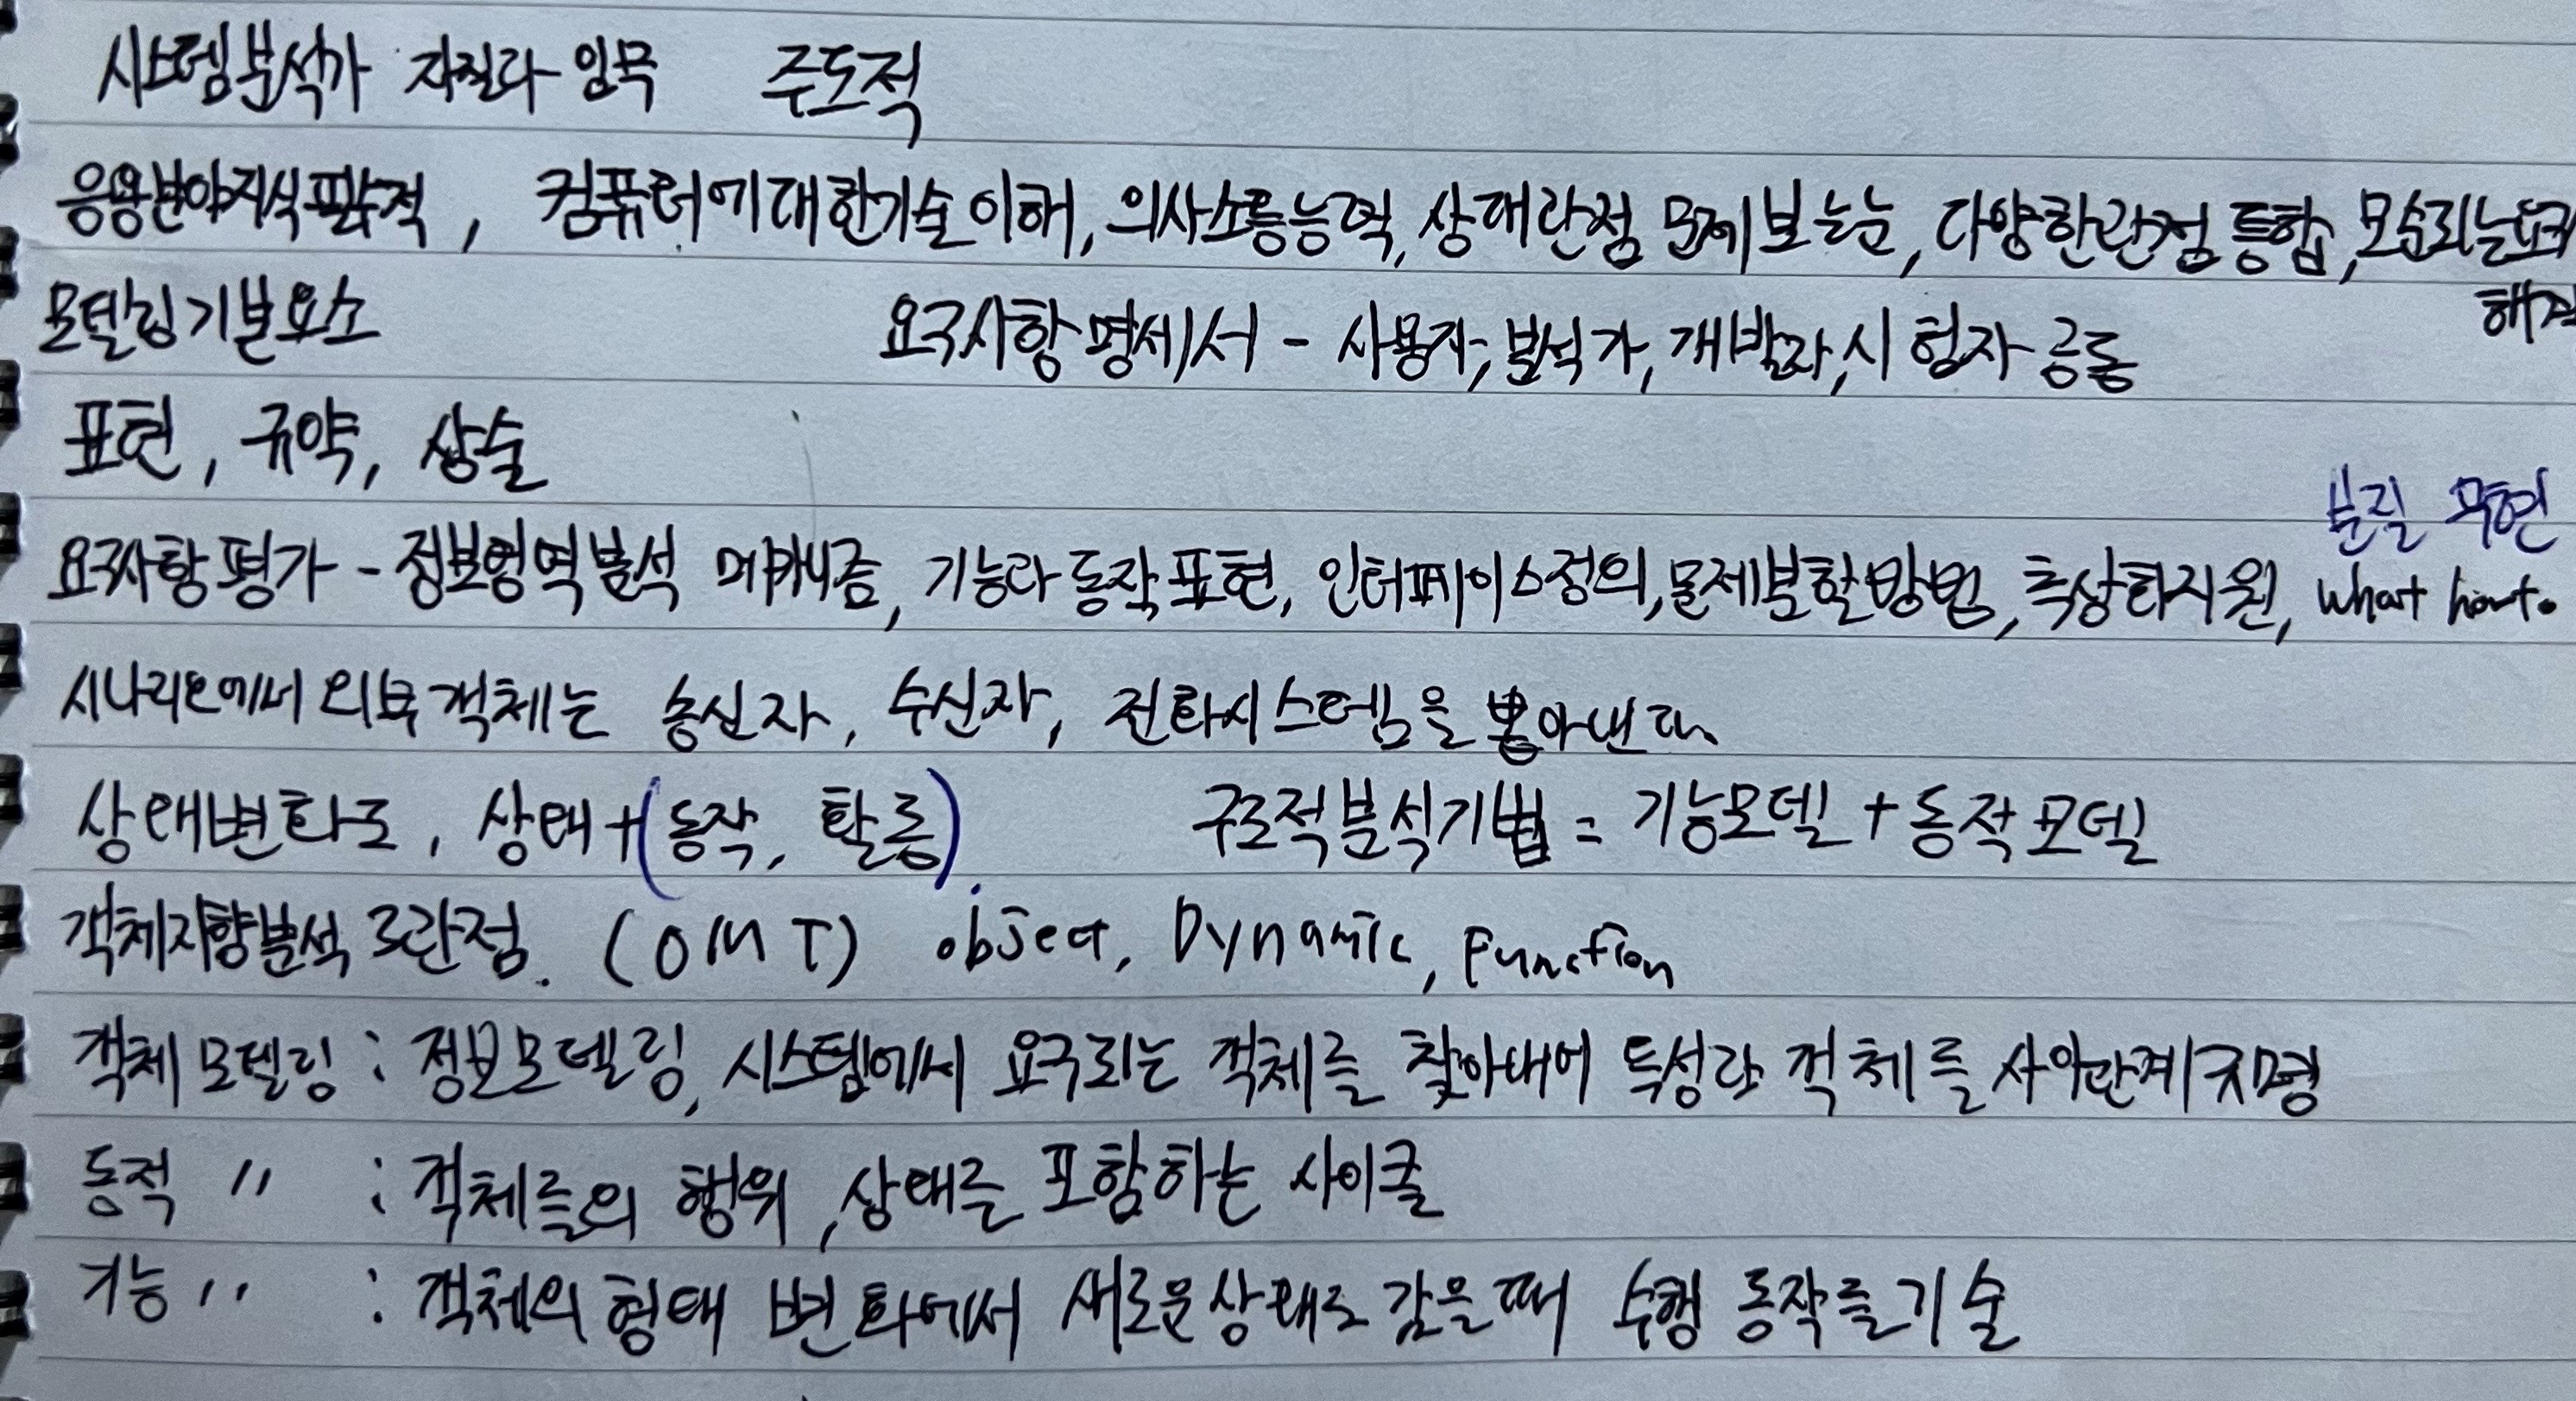 시스템분석가 자질과 임무 주도적
응용분야지식 축적, 컴퓨터에대한기술이해, 의사소통능력, 상대관점 문제보는눈, 다양한관점통합, 모순되는요구
해결
모델링기본요소 요구사항명세서 - 사용자, 분석가, 개발자, 시험자 공통
표현, 규약, 상술
본질 구현
요구사항평가 - 정보영역분석 메커니즘, 기능과 동작표현, 인터페이스정의, 문제분할방법, 추상화지원, what
시나리오에서 외부객체는 송신자, 수신자, 전화시스템을 뽑아낸다
상태변화도, 상태+(동작, 활동). 구조적분석기법 = 기능모델 + 동적모델
객체지향분석 3관점. (OMT) object, Dynamic, Function
객체모델링 : 정보모델링, 시스템에서 요구되는 객체를 찾아내어 특성과 객체들 사이관계규명
동적 〃 : 객체들의 행위, 상태를 포함하는 사이클
기능 〃 : 객체의 형태 변화에서 새로운상태로 갔을때 수행 동작들기술